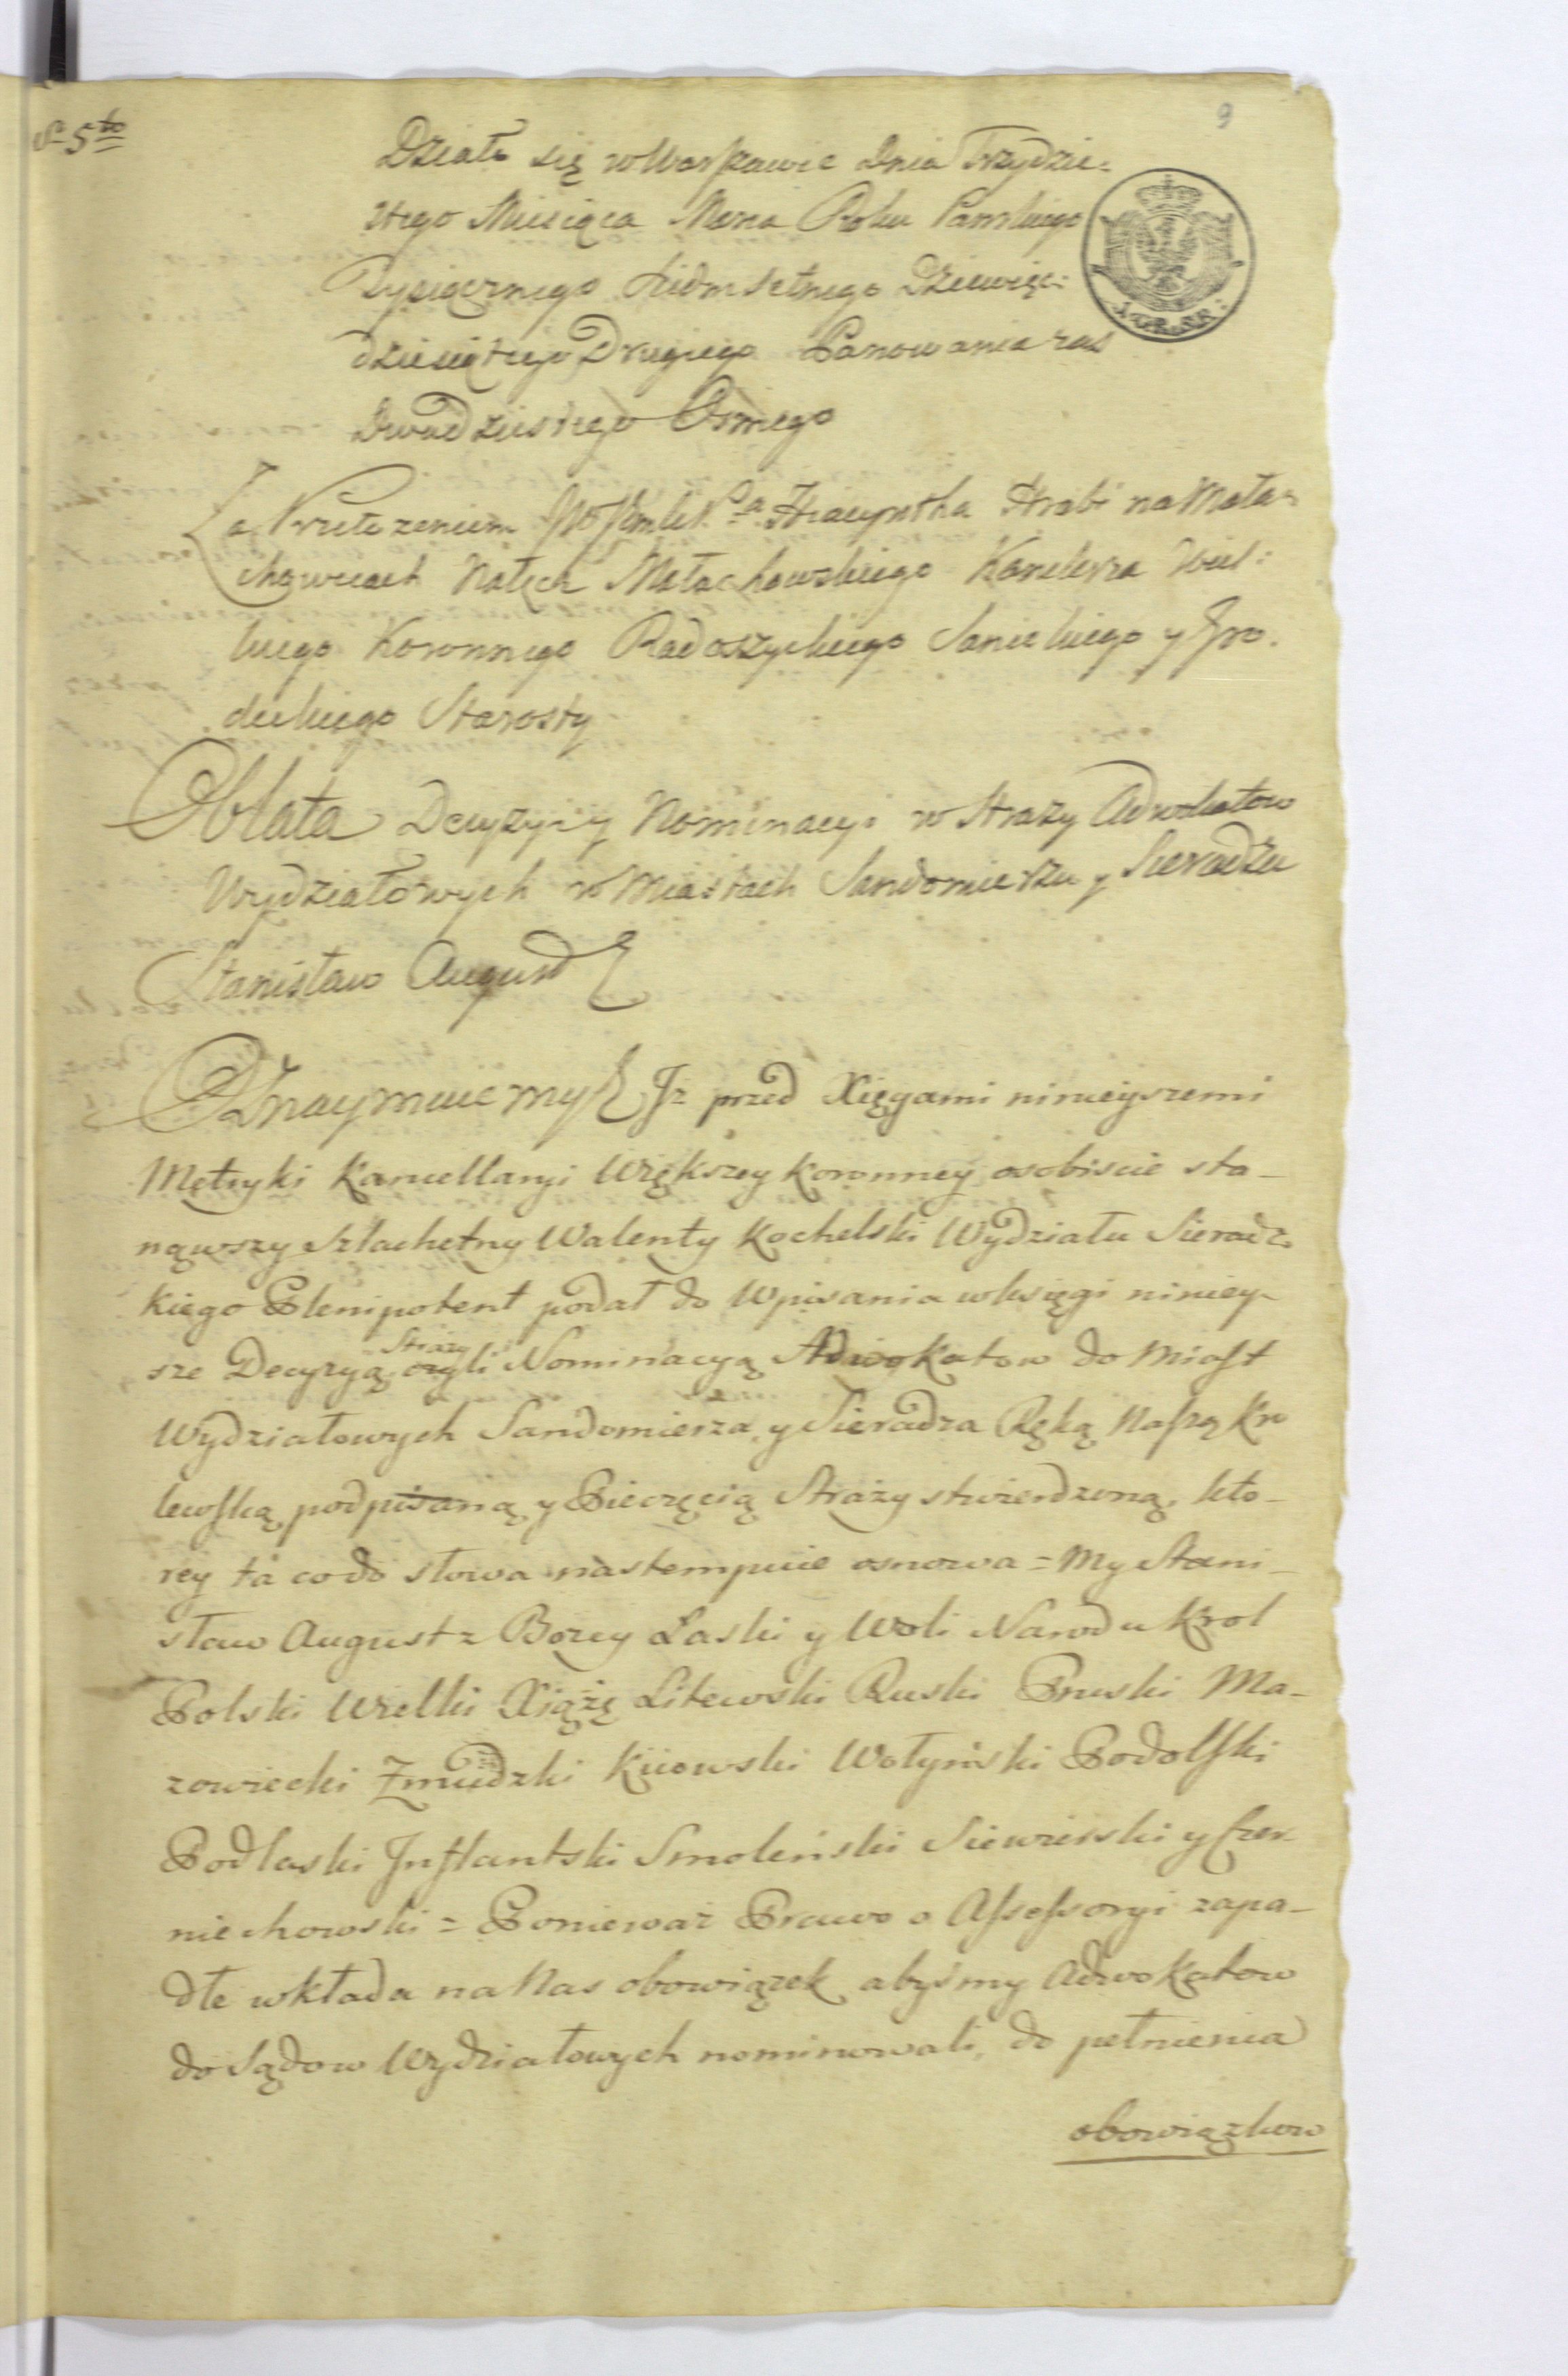 9
5to
Działo się w Warszawie Dnia Trzydzie:
stego Miesiąca Marca Roku Pańskiego
Tysiącznego Siedmsetnego Dziewięć:
dziesiątego Drugiego Panowania zaś
Dwudziestego Osmego
Za Przełożeniem Hiacyntha Hrabi na Mała:
chowicach Nałęcz Małachowskiego Kanclerza Wiel:
kiego Koronnego Radoszyckiego Sanickiego y Gro:
deckiego Starosty
Oblata Decyzyi y Nominacyi w Straży Adwokatow
Wydziałowych w Miastach Sandomierzu y Sieradzu
Stanisław August
Oznaymuiemy Iż przed Xięgami ninieyszemi
Metryki Kancellaryi Większey Koronney osobiscie sta-
nąwszy Szlachetny Walenty Kochelski Wydziału Sieradz-
kiego Plenipotent podał do Wpisania w księgi niniey-
sze Decyzyą Straży czyli Nominacyą Adwokatow do Miast
Wydziałowych Sandomierza y Sieradza Ręką Naszą Kro
lewską podpisaną y Pieczęcią Straży stwierdzoną, kto-
rey ta co do słowa nastempuie osnowa = My Stani-
sław August z Bożey Łaski y Woli Narodu Krol
Polski Wielki Xiążę Litewski Ruski Pruski Ma-
zowiecki Żmudzki Kiiowski Wołyński Podolski
Podlaski Inflantski Smoleński Siewierski y Czer-
niechowski = Ponieważ Prawo o Assessoryi zapa-
dłe wkłada na Nas obowiązek abyśmy Adwokatow
do Sądow Wydziałowych nominowali, do pełnienia
obowiązkow